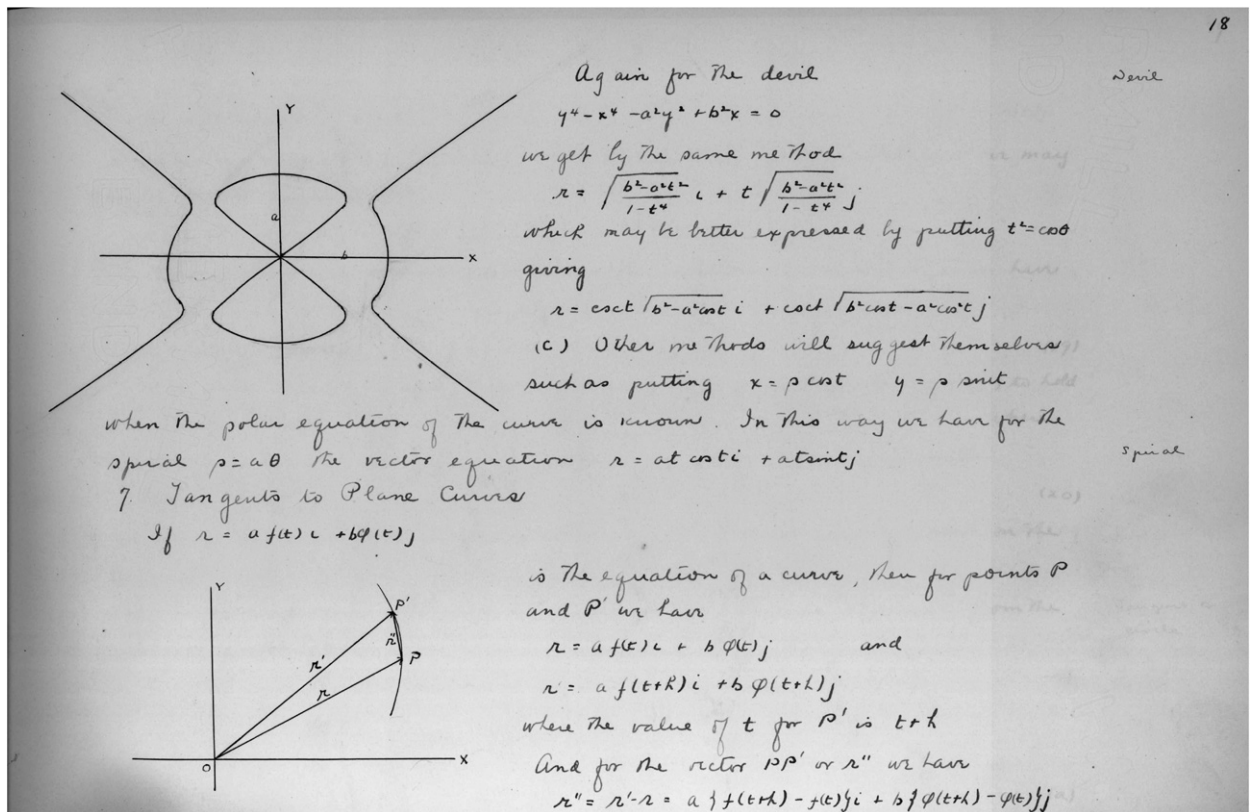 18
Again for the devil
Devil
y⁴ - x⁴ - a²y² + b²x = 0
we get by the same method
r = √(b²-a²t²/1-t⁴) i + t √(b²-a²t²/1-t⁴) j
which may be better expressed by putting t² = cosθ
giving
r = csct √(b²-a²cost) i + csct √(b²cost - a²cos²t) j
(c) Other methods will suggest themselves
such as putting x = ρ cost y = ρ sint
when the polar equation of the curve is known. In this way we have for the
spiral ρ = aθ the vector equation r = at cost i + at sint j
Spiral
7. Tangents to Plane Curves
If r = a f(t) i + bφ(t) j
is the equation of a curve, then for points P
and P' we have
r = a f(t) i + b φ(t) j and
r' = a f(t+h) i + b φ(t+h) j
where the value of t for P' is t+h
And for the vector PP' or r" we have
r" = r'-r = a{f(t+h) - f(t)}i + b{φ(t+h) - φ(t)}j
Y
a
b
X
Y
P'
r"
P
r'
r
O
X